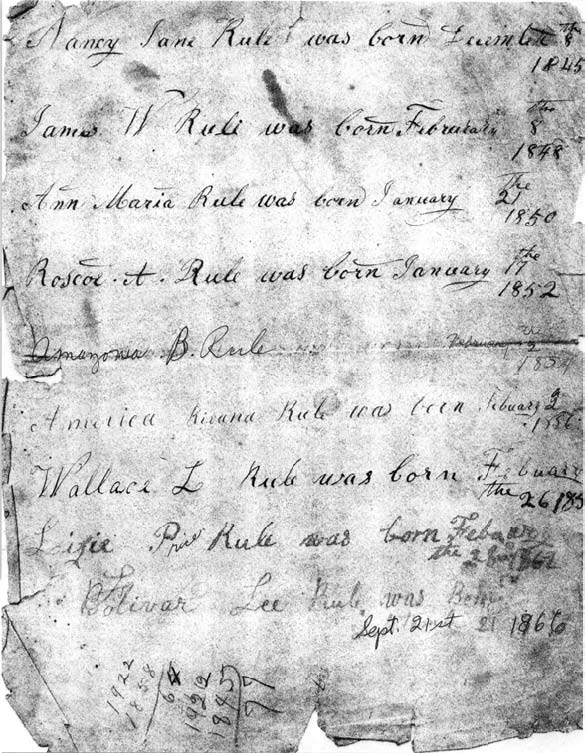 Nancy Jane Rule was born December the 8
1845
James W Rule was born February the 8
1848
Ann Maria Rule was born January the 21
1850
Roscoe . A . Rule was born January the 17
1852
Amazonia B. Rule February the 2
1854
America Rule was born Febuary 2
1856
Wallace L Rule was born Febuary
the 26 185
Lizie Rule was born Febuary
the 22 1862
Bolivar Lee Rule was Born
Sept. 21st 21 1866
1922
1858
64
1922
1845
77